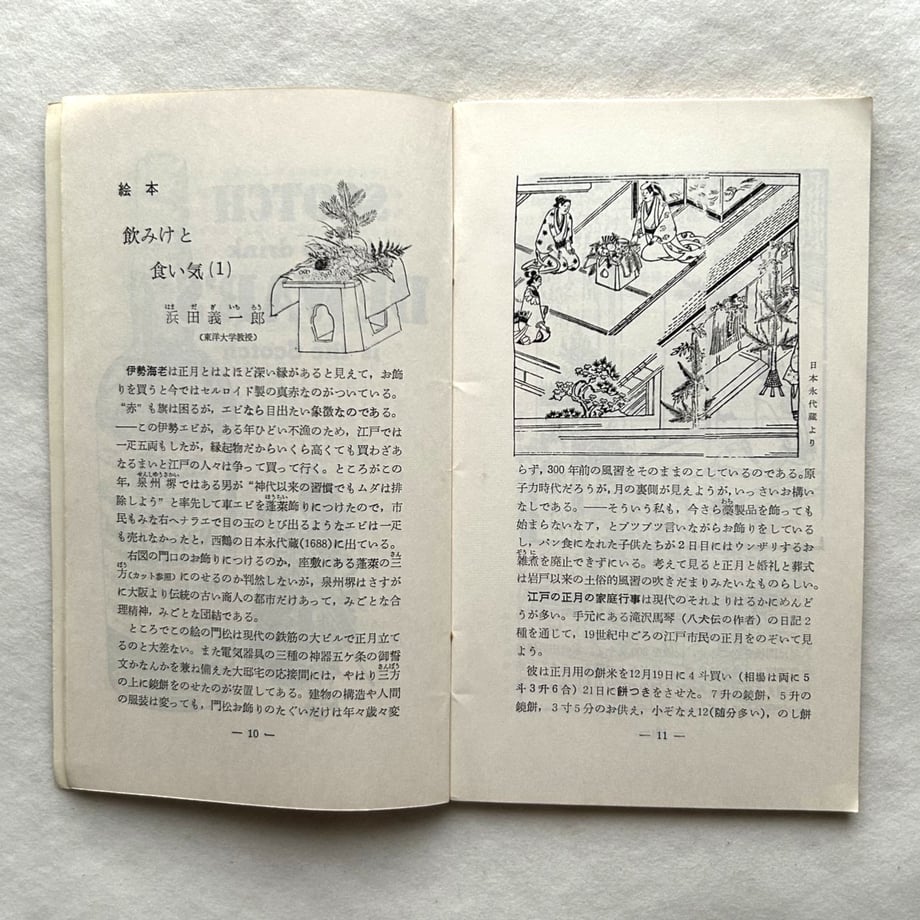 絵本
飲みけと
食い気(1)
はまだぎいちろう
浜田義一郎
(東洋大学教授)
伊勢海老は正月とはよほど深い縁があると見えて，お飾
りを買うと今ではセルロイド製の真赤なのがついている。
“赤”も旗は困るが，エビなら目出たい象徴なのである。
──この伊勢エビが，ある年ひどい不漁のため，江戸では
一疋五両もしたが，縁起物だからいくら高くても買わざあ
なるまいと江戸の人々は争って買って行く。ところがこの
せんしゅうさかい
年，泉州堺ではある男が“神代以来の習慣でもムダは排
ほうらい
除しよう”と率先して車エビを蓬莱飾りにつけたので，市
民もみな右へナラエで目の玉のとび出るようなエビは一疋
も売れなかったと，西鶴の日本永代蔵(1688)に出ている。
さん
右図の門口のお飾りにつけるのか，座敷にある蓬莱の三
ぽう
方(カット参照)にのせるのか判然しないが，泉州堺はさすが
に大阪より伝統の古い商人の都市だけあって，みごとな合
理精神，みごとな団結である。
ところでこの絵の門松は現代の鉄筋の大ビルで正月立て
るのと大差ない。また電気器具の三種の神器五ケ条の御誓
さんぽう
文かなんかを兼ね備えた大邸宅の応接間には，やはり三方
の上に鏡餅をのせたのが安置してある。建物の構造や人間
の服装は変っても，門松お飾りのたぐいだけは年々歳々変
― 10 ―
日本永代蔵より
らず，300年前の風習をそのままのこしているのである。原
子力時代だろうが，月の裏側が見えようが，いっさいお構い
なしである。──そういう私も，今さら藁製品を飾っても
始まらないなァ，とブツブツ言いながらお飾りをしている
し，パン食になれた子供たちが2日目にはウンザリするお
ぞうに
雑煮を廃止できずにいる。考えて見ると正月と婚礼と葬式
は岩戸以来の土俗的風習の吹きだまりみたいなものらしい。
江戸の正月の家庭行事は現代のそれよりはるかにめんど
うが多い。手元にある滝沢馬琴（八犬伝の作者）の日記2
種を通じて，19世紀中ごろの江戸市民の正月をのぞいて見
よう。
彼は正月用の餅米を12月19日に4斗買い（相場は両に5
斗3升6合）21日に餅つきをさせた。7升の鏡餅，5升の
鏡餅，3寸5分のお供え，小ぞなえ12(随分多い)，のし餅
― 11 ―